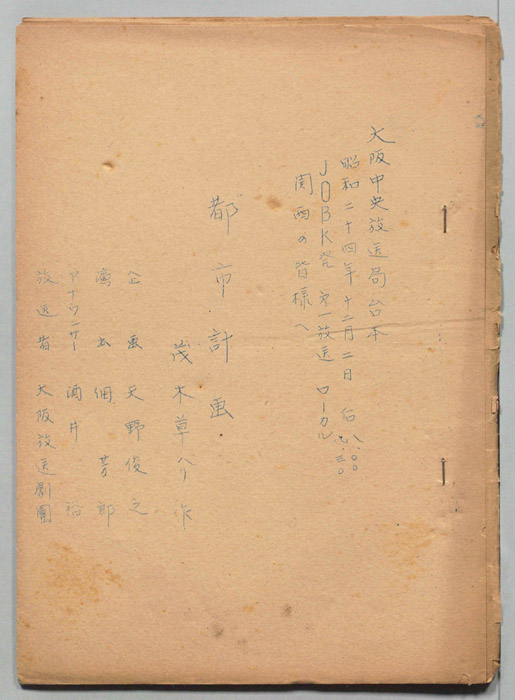 大阪中央放送局台本
昭和二十四年十二月二日 后 八.〇〇
七.三〇
JOBK発 第一放送 ローカル
関西の皆様へ
都市計画
茂木草介 作
企画 天野俊之
演出 佃 芳郎
アナウンサー 酒井 裕
放送者 大阪放送劇團